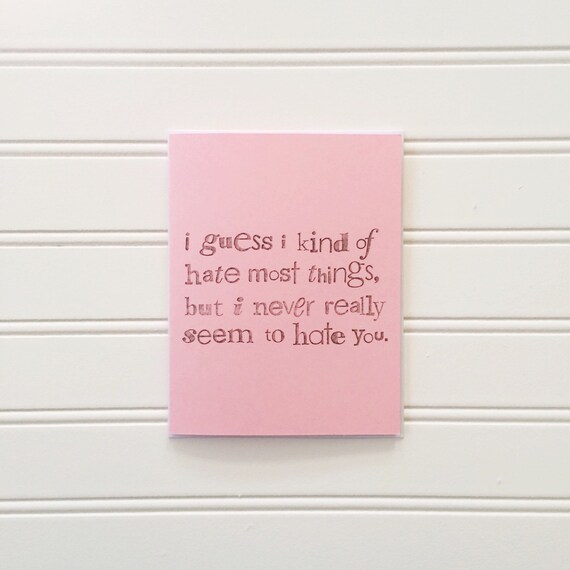 i guess i kind of
hate most things,
but i never really
seem to hate you.